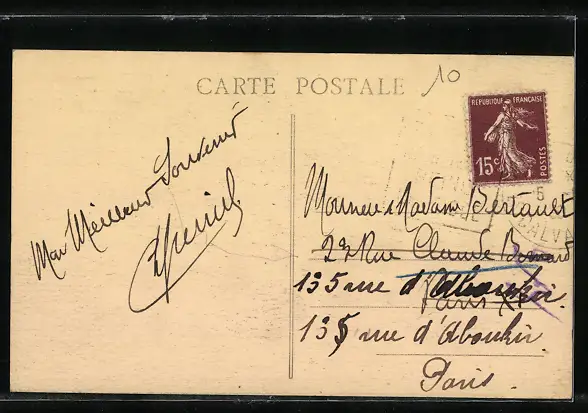 CARTE POSTALE
10
REPUBLIQUE FRANÇAISE
15c
POSTES
CALVA
5
Mon Meilleur Souvenir
Monsieur Madame Bertault
23 Rue Claude Bernard
135 rue d'Aboukir
Paris
135 rue d'Aboukir
Paris.